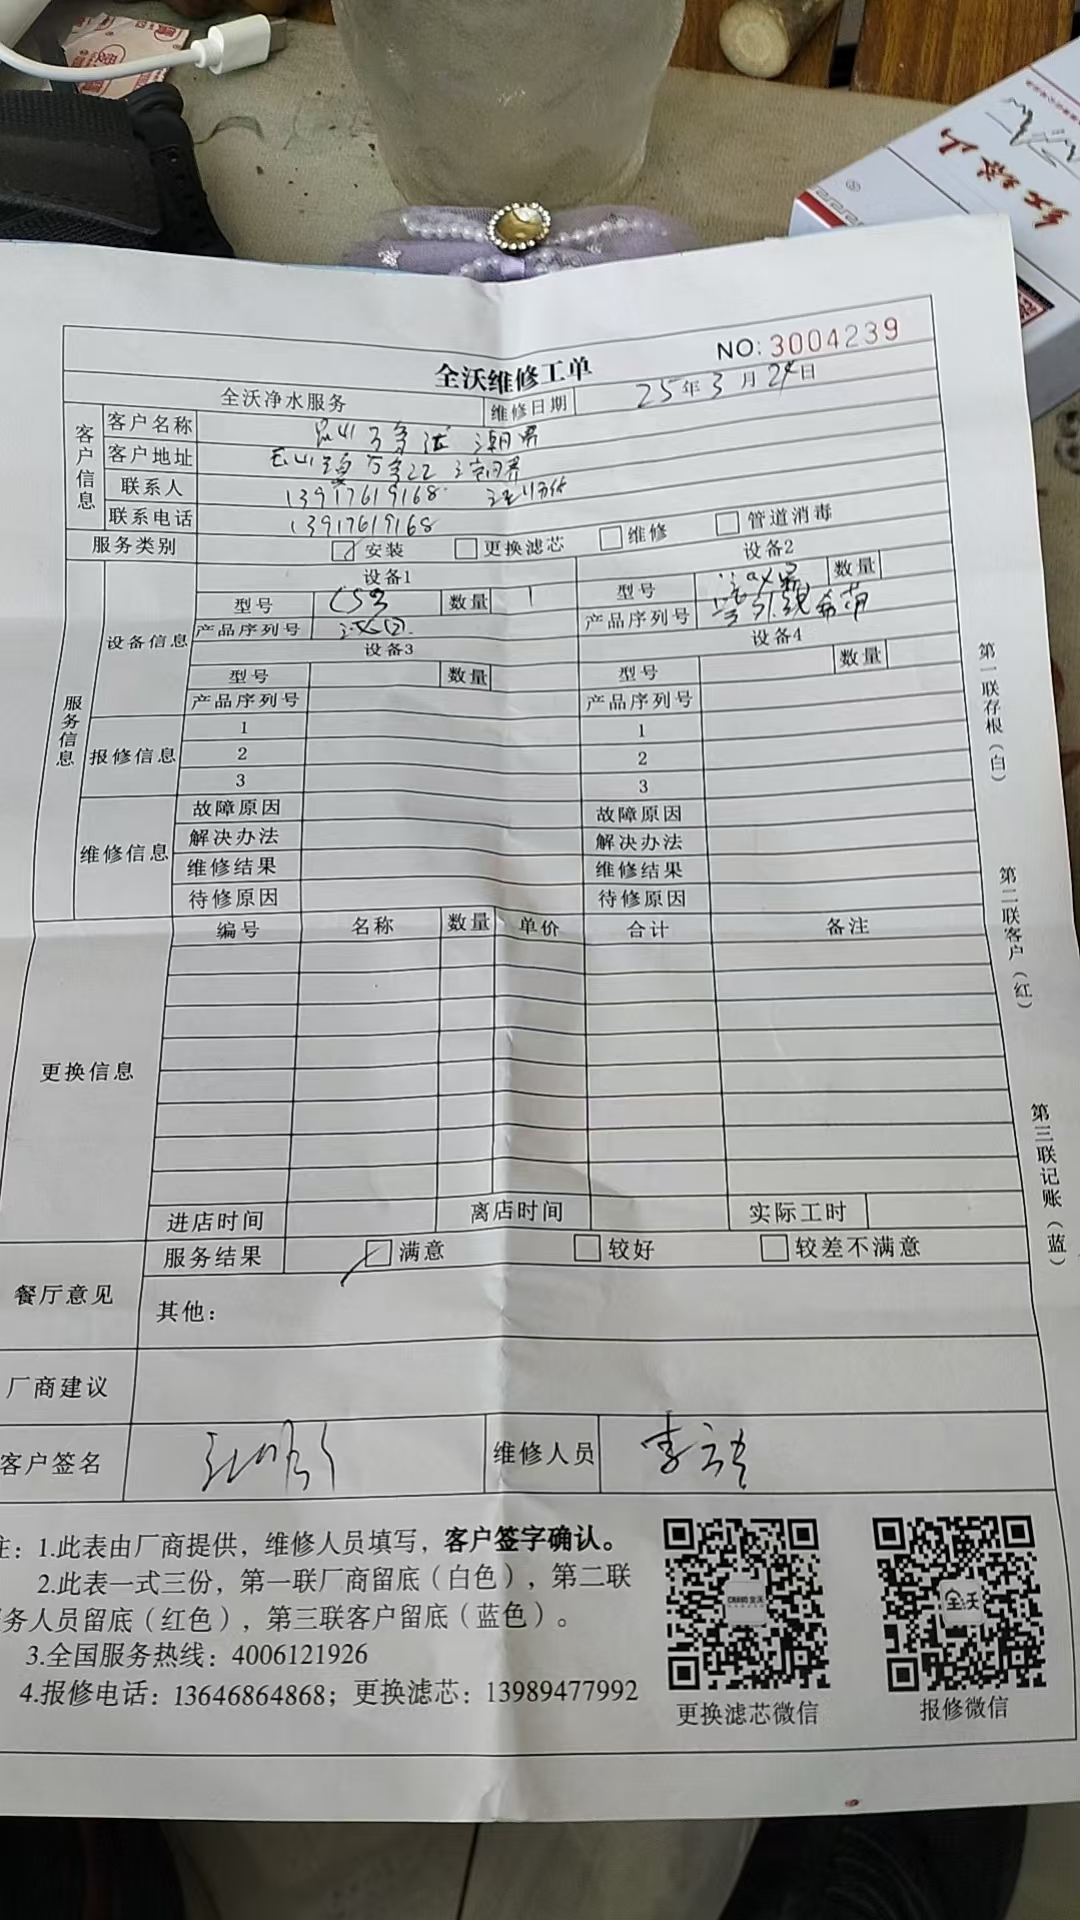 红塔山
NO: 3004239
全沃维修工单
全沃净水服务 维修日期 25年3月24日
客户信息
客户名称 昆山万象汇
客户地址 万象汇
联系人 13917619168
联系电话 13917619168
服务类别 安装 更换滤芯 维修 管道消毒
服务信息
设备信息
设备1 设备2
型号 数量 1 型号 数量
产品序列号 产品序列号
设备3 设备4
型号 数量 型号 数量
产品序列号 产品序列号
报修信息
1 1
2 2
3 3
维修信息
故障原因 故障原因
解决办法 解决办法
维修结果 维修结果
待修原因 待修原因
更换信息
编号 名称 数量 单价 合计 备注
进店时间 离店时间 实际工时
餐厅意见
服务结果 满意 较好 较差不满意
其他：
厂商建议
客户签名 维修人员 李
注：1.此表由厂商提供，维修人员填写，客户签字确认。
2.此表一式三份，第一联厂商留底（白色），第二联
务人员留底（红色），第三联客户留底（蓝色）。
3.全国服务热线：4006121926
4.报修电话：13646864868；更换滤芯：13989477992
全沃
更换滤芯微信
全沃
报修微信
第一联存根（白）
第二联客户（红）
第三联记账（蓝）